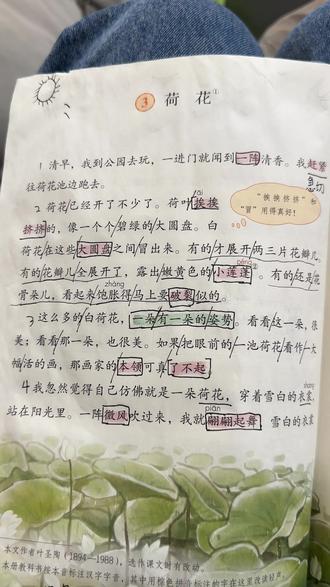 3 荷花①
1 清早，我到公园去玩，一进门就闻到一阵清香。我赶紧
急切
往荷花池边跑去。
2 荷花已经开了不少了。荷叶挨挨
āi
挤挤的，像一个个碧绿的大圆盘。白
“挨挨挤挤”和“冒”用得真好！
荷花在这些大圆盘之间冒出来。有的才展开两三片花瓣儿。
有的花瓣儿全展开了，露出嫩黄色的小莲蓬②。有的还是花
péng
骨朵儿，看起来饱胀得马上要破裂似的。
zhàng
3 这么多的白荷花，一朵有一朵的姿势。看看这一朵，很
美；看看那一朵，也很美。如果把眼前的一池荷花看作一大
幅活的画，那画家的本领可真了不起。
4 我忽然觉得自己仿佛就是一朵荷花，穿着雪白的衣裳，
shang
站在阳光里。一阵微风吹过来，我就翩翩起舞，雪白的衣裳
piān
本文作者叶圣陶（1894—1988），选作课文时有改动。
本册教科书按本音标注汉字字音，其中用棕色拼音标注的字在这里没读轻声。